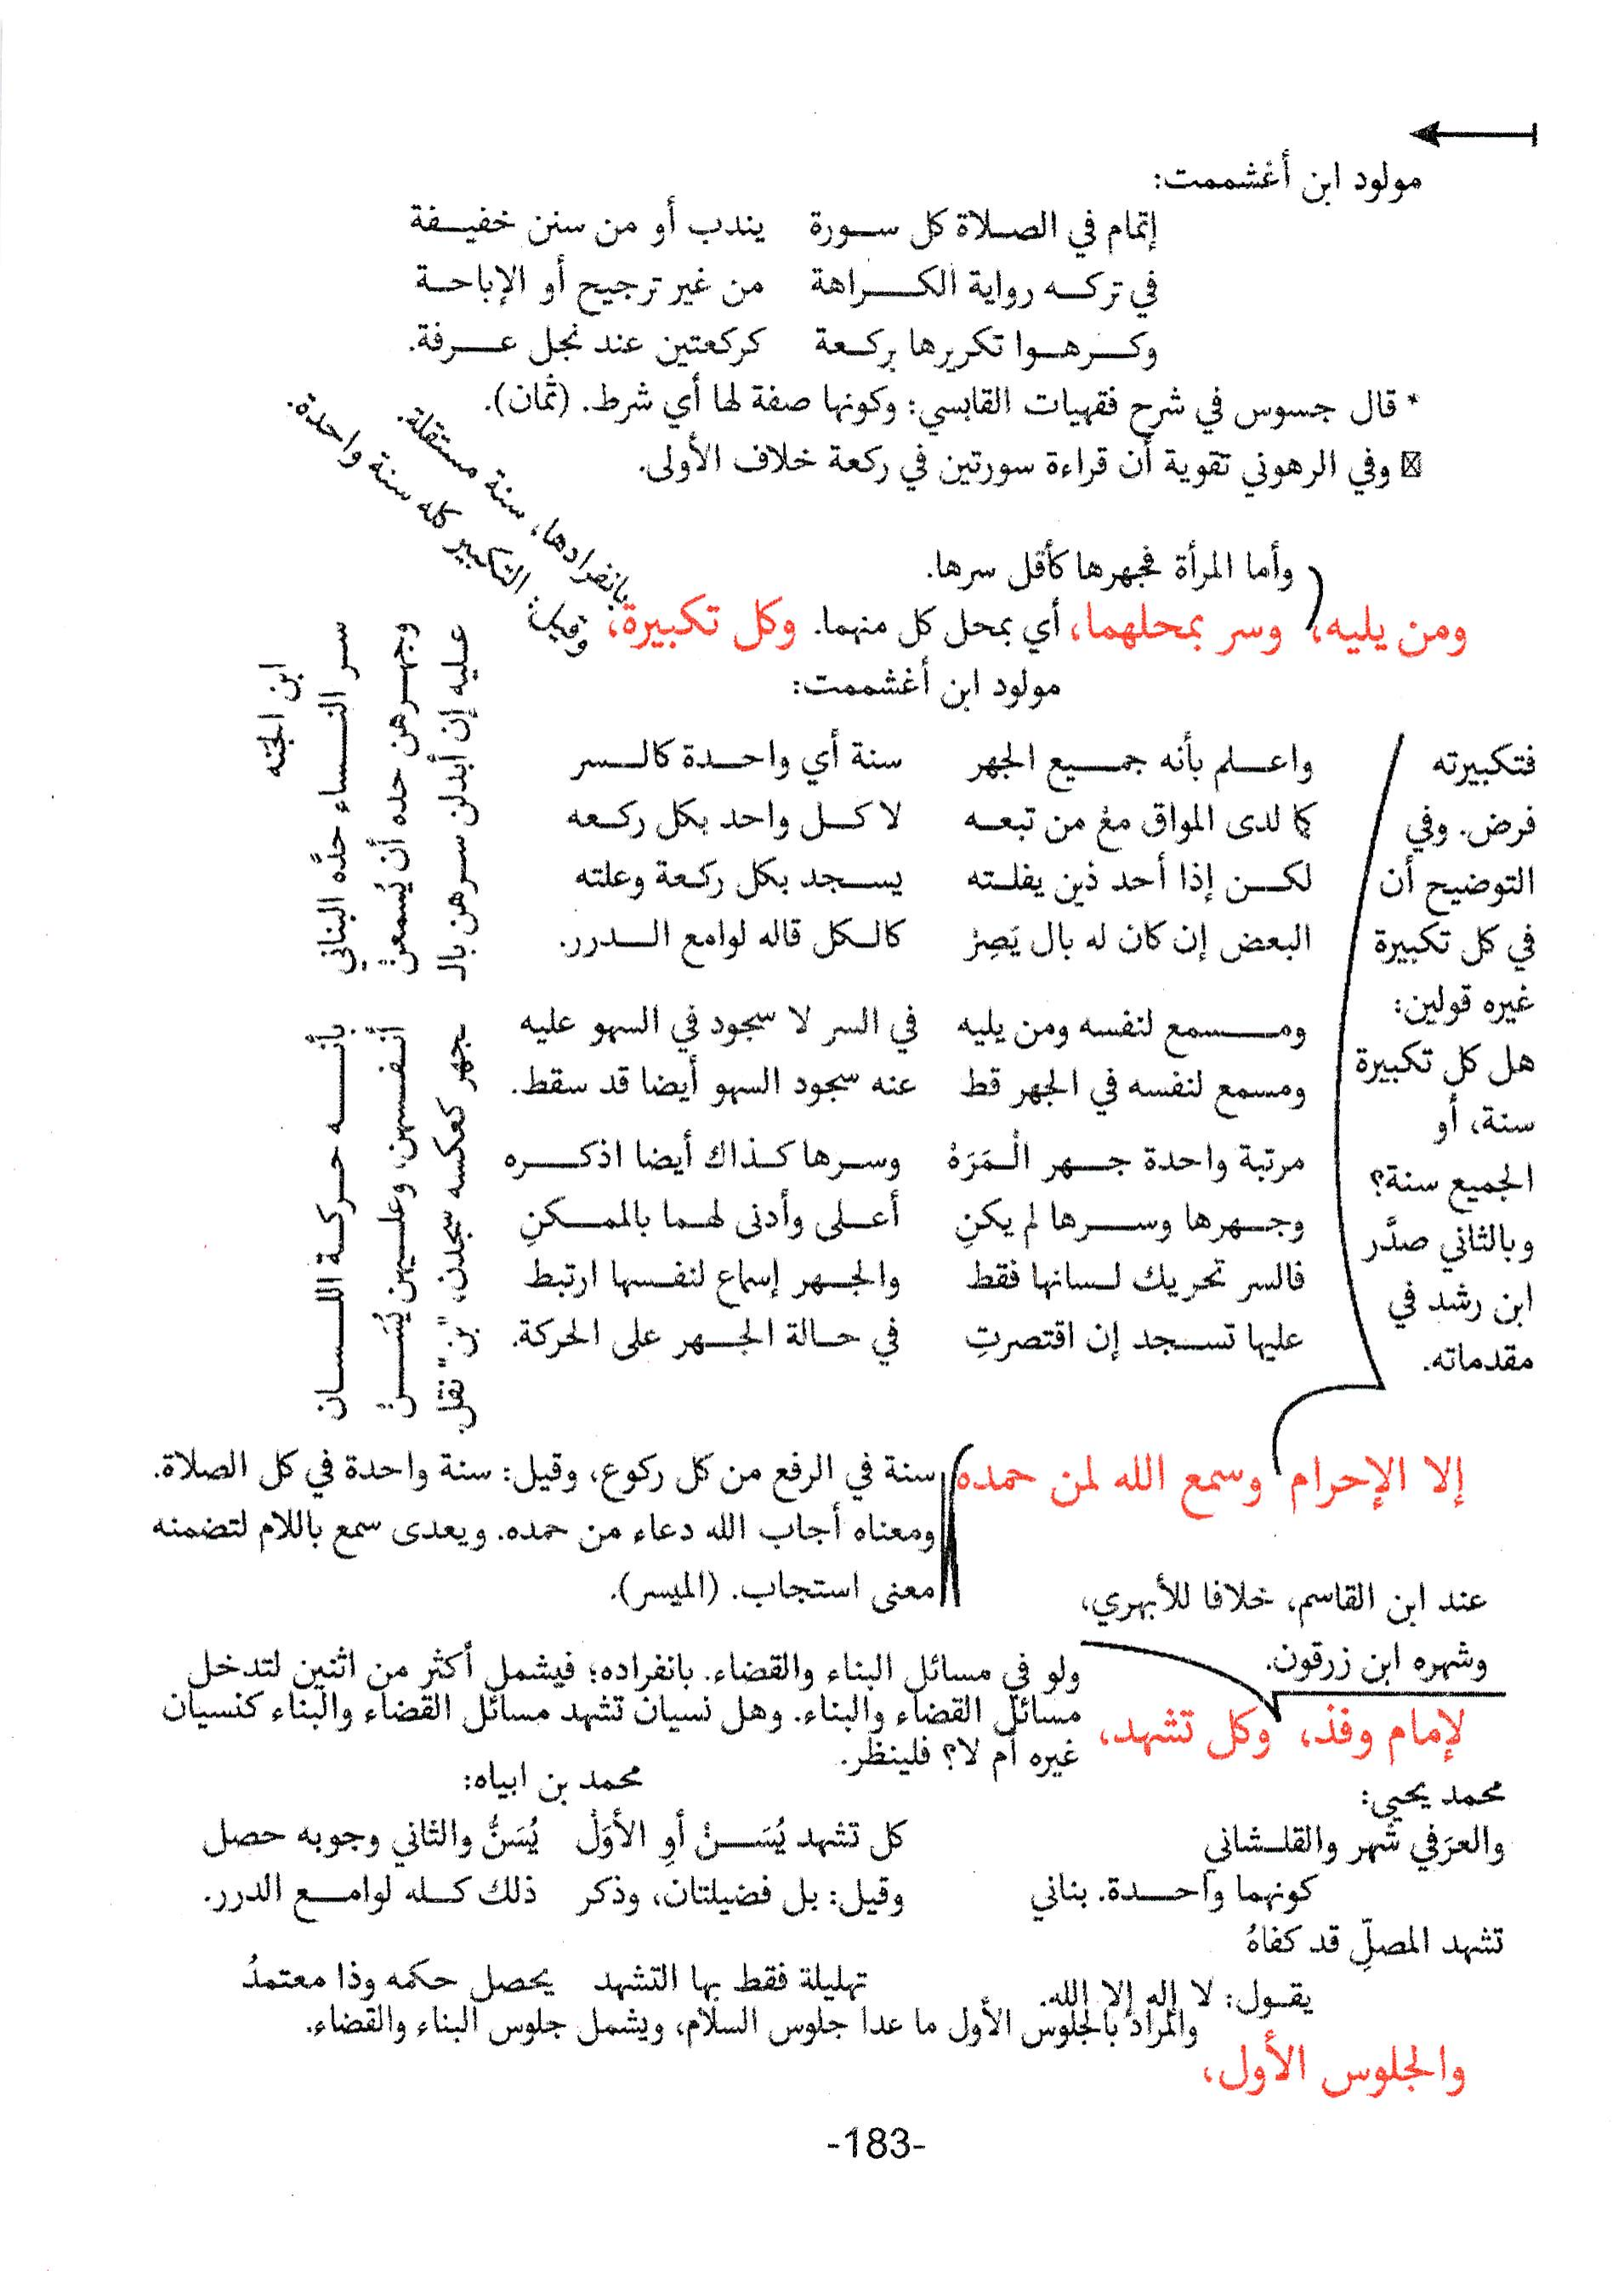 مولود ابن أغشممت:
إتمام في الصلاة كل سورة يندب أو من سنن خفيفة
في تركه رواية الكراهة من غير ترجيح أو الإباحة
وكرهوا تكريرها بركعة كركعتين عند نجل عرفة.
* قال جسوس في شرح فقهيات القابسي: وكونها صفة لها أي شرط. (ثمان).
☒ وفي الرهوني تقوية أن قراءة سورتين في ركعة خلاف الأولى.
وأما المرأة فجهرها كأقل سرها.
ومن يليه، وسر بمحلهما، أي بمحل كل منهما. وكل تكبيرة،
بانفرادها، سنة مستقلة.
وقيل: التكبير كله سنة واحدة.
مولود ابن أغشممت:
واعلم بأنه جميع الجهر سنة أي واحدة كالسر
كما لدى المواق مع من تبعه لا كل واحد بكل ركعه
لكن إذا أحد ذين يفلته يسجد بكل ركعة وعلته
البعض إن كان له بال يَصِرْ كالكل قاله لوامع الدرر.
ومسمع لنفسه ومن يليه في السر لا سجود في السهو عليه
ومسمع لنفسه في الجهر قط عنه سجود السهو أيضا قد سقط.
مرتبة واحدة جهر الْمَرَهْ وسرها كذاك أيضا اذكره
وجهرها وسرها لم يكنِ أعلى وأدنى لهما بالممكنِ
فالسر تحريك لسانها فقط والجهر إسماع لنفسها ارتبط
عليها تسجد إن اقتصرتِ في حالة الجهر على الحركة.
فتكبيرته
فرض. وفي
التوضيح أن
في كل تكبيرة
غيره قولين:
هل كل تكبيرة
سنة، أو
الجميع سنة؟
وبالثاني صدَّر
ابن رشد في
مقدماته.
ابن الجنه
سر النساء حدَّه البناني بأنه حركة اللسان
وجهرهن حده أن يُسمعنْ أنفسهن، وعليهن يُسَنْ
عليه إن أبدلن سرهن بالـ ـجهر كعكسه سجدن، "بن" نقل.
إلا الإحرام وسمع الله لمن حمده
سنة في الرفع من كل ركوع، وقيل: سنة واحدة في كل الصلاة.
ومعناه أجاب الله دعاء من حمده. ويعدى سمع باللام لتضمنه
معنى استجاب. (الميسر).
عند ابن القاسم، خلافا للأبهري،
وشهره ابن زرقون.
لإمام وفذ، وكل تشهد،
ولو في مسائل البناء والقضاء. بانفراده؛ فيشمل أكثر من اثنين لتدخل
مسائل القضاء والبناء. وهل نسيان تشهد مسائل القضاء والبناء كنسيان
غيره أم لا؟ فلينظر.
محمد بن ابياه:
كل تشهد يُسَنْ أوِ الأوَلْ يُسَنُّ والثاني وجوبه حصل
وقيل: بل فضيلتان، وذكر ذلك كله لوامع الدرر.
محمد يحيى:
والعرَفي شهر والقلشاني
كونهما واحدة. بناني
تشهد المصلِّ قد كفاهُ
يقول: لا إله إلا الله.
تهليلة فقط بها التشهد يحصل حكمه وذا معتمدُ
والمراد بالجلوس الأول ما عدا جلوس السلام، ويشمل جلوس البناء والقضاء.
والجلوس الأول،
-183-